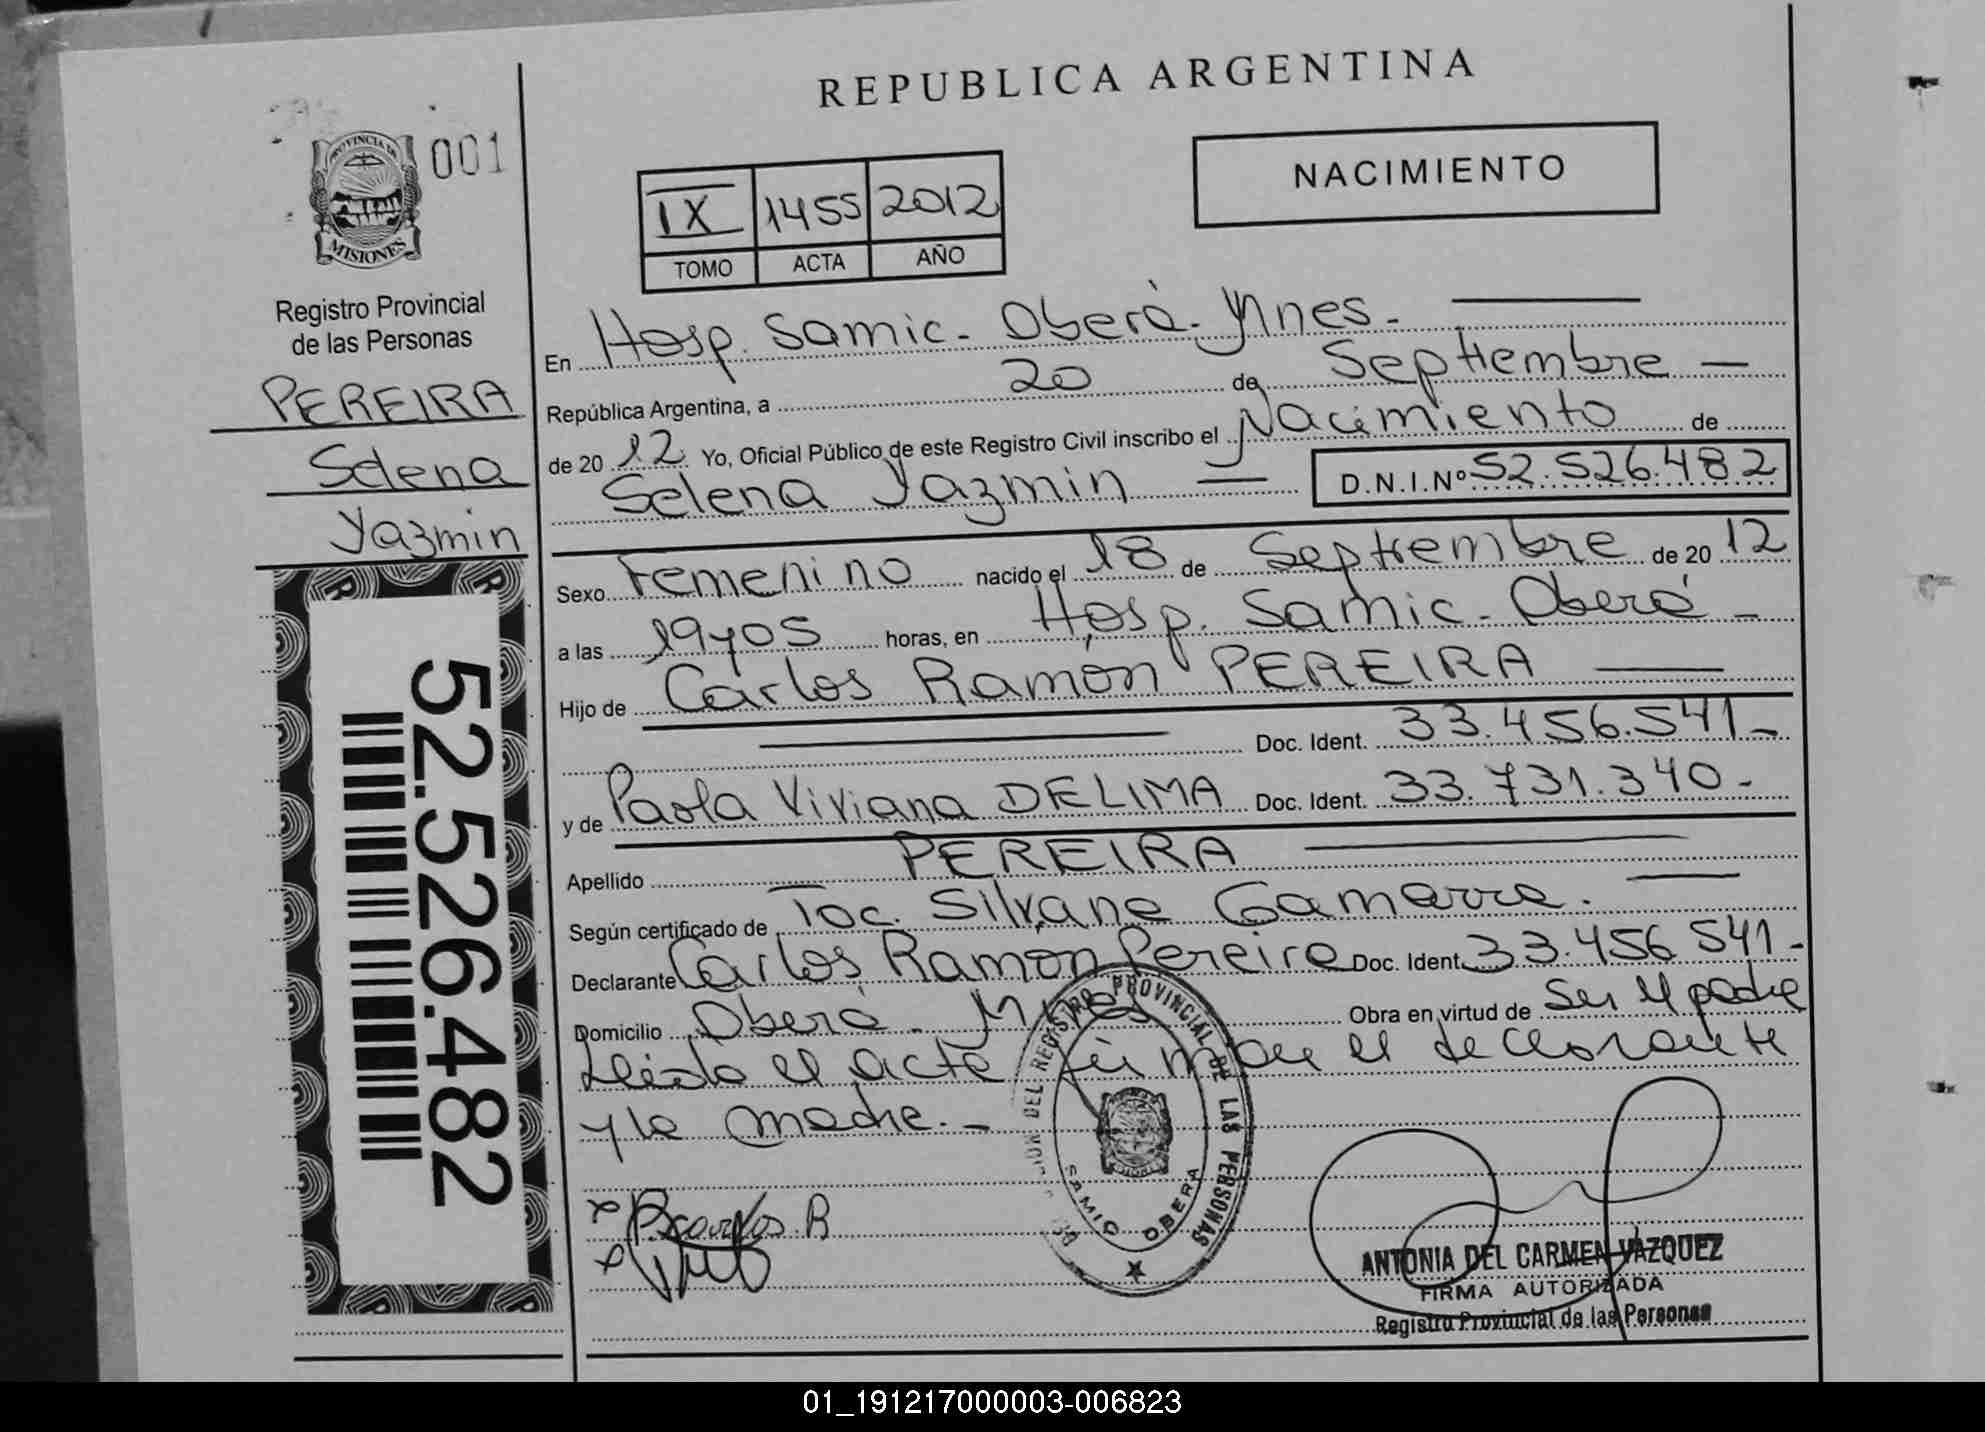 REPUBLICA ARGENTINA
PROVINCIA DE
MISIONES
001
Registro Provincial
de las Personas
PEREIRA
Selena
Yazmin
52.526.482
IX 1455 2012
TOMO ACTA AÑO
NACIMIENTO
En Hosp. Samic - Oberá - Mnes. -
República Argentina, a 20 de Septiembre
de 20 12 Yo, Oficial Público de este Registro Civil inscribo el Nacimiento de
Selena Yazmin D.N.I.Nº 52.526.482
Sexo Femenino nacido el 18 de Septiembre de 20 12
a las 19y05 horas, en Hosp. Samic - Oberá -
Hijo de Carlos Ramón PEREIRA
Doc. Ident. 33.456.541-
y de Paola Viviana DELIMA Doc. Ident. 33.731.340-
Apellido PEREIRA
Según certificado de Toc. Silvana Gamarra.
Declarante Carlos Ramon Pereira Doc. Ident. 33.456 541-
Domicilio Oberá - Mnes Obra en virtud de Ser el padre
Leida el acta firman el declarante
y la madre. -
DEL REGISTRO PROVINCIAL DE LAS PERSONAS
SAMIC OBERA
ANTONIA DEL CARMEN VAZQUEZ
FIRMA AUTORIZADA
Registro Provincial de las Personas
01_191217000003-006823